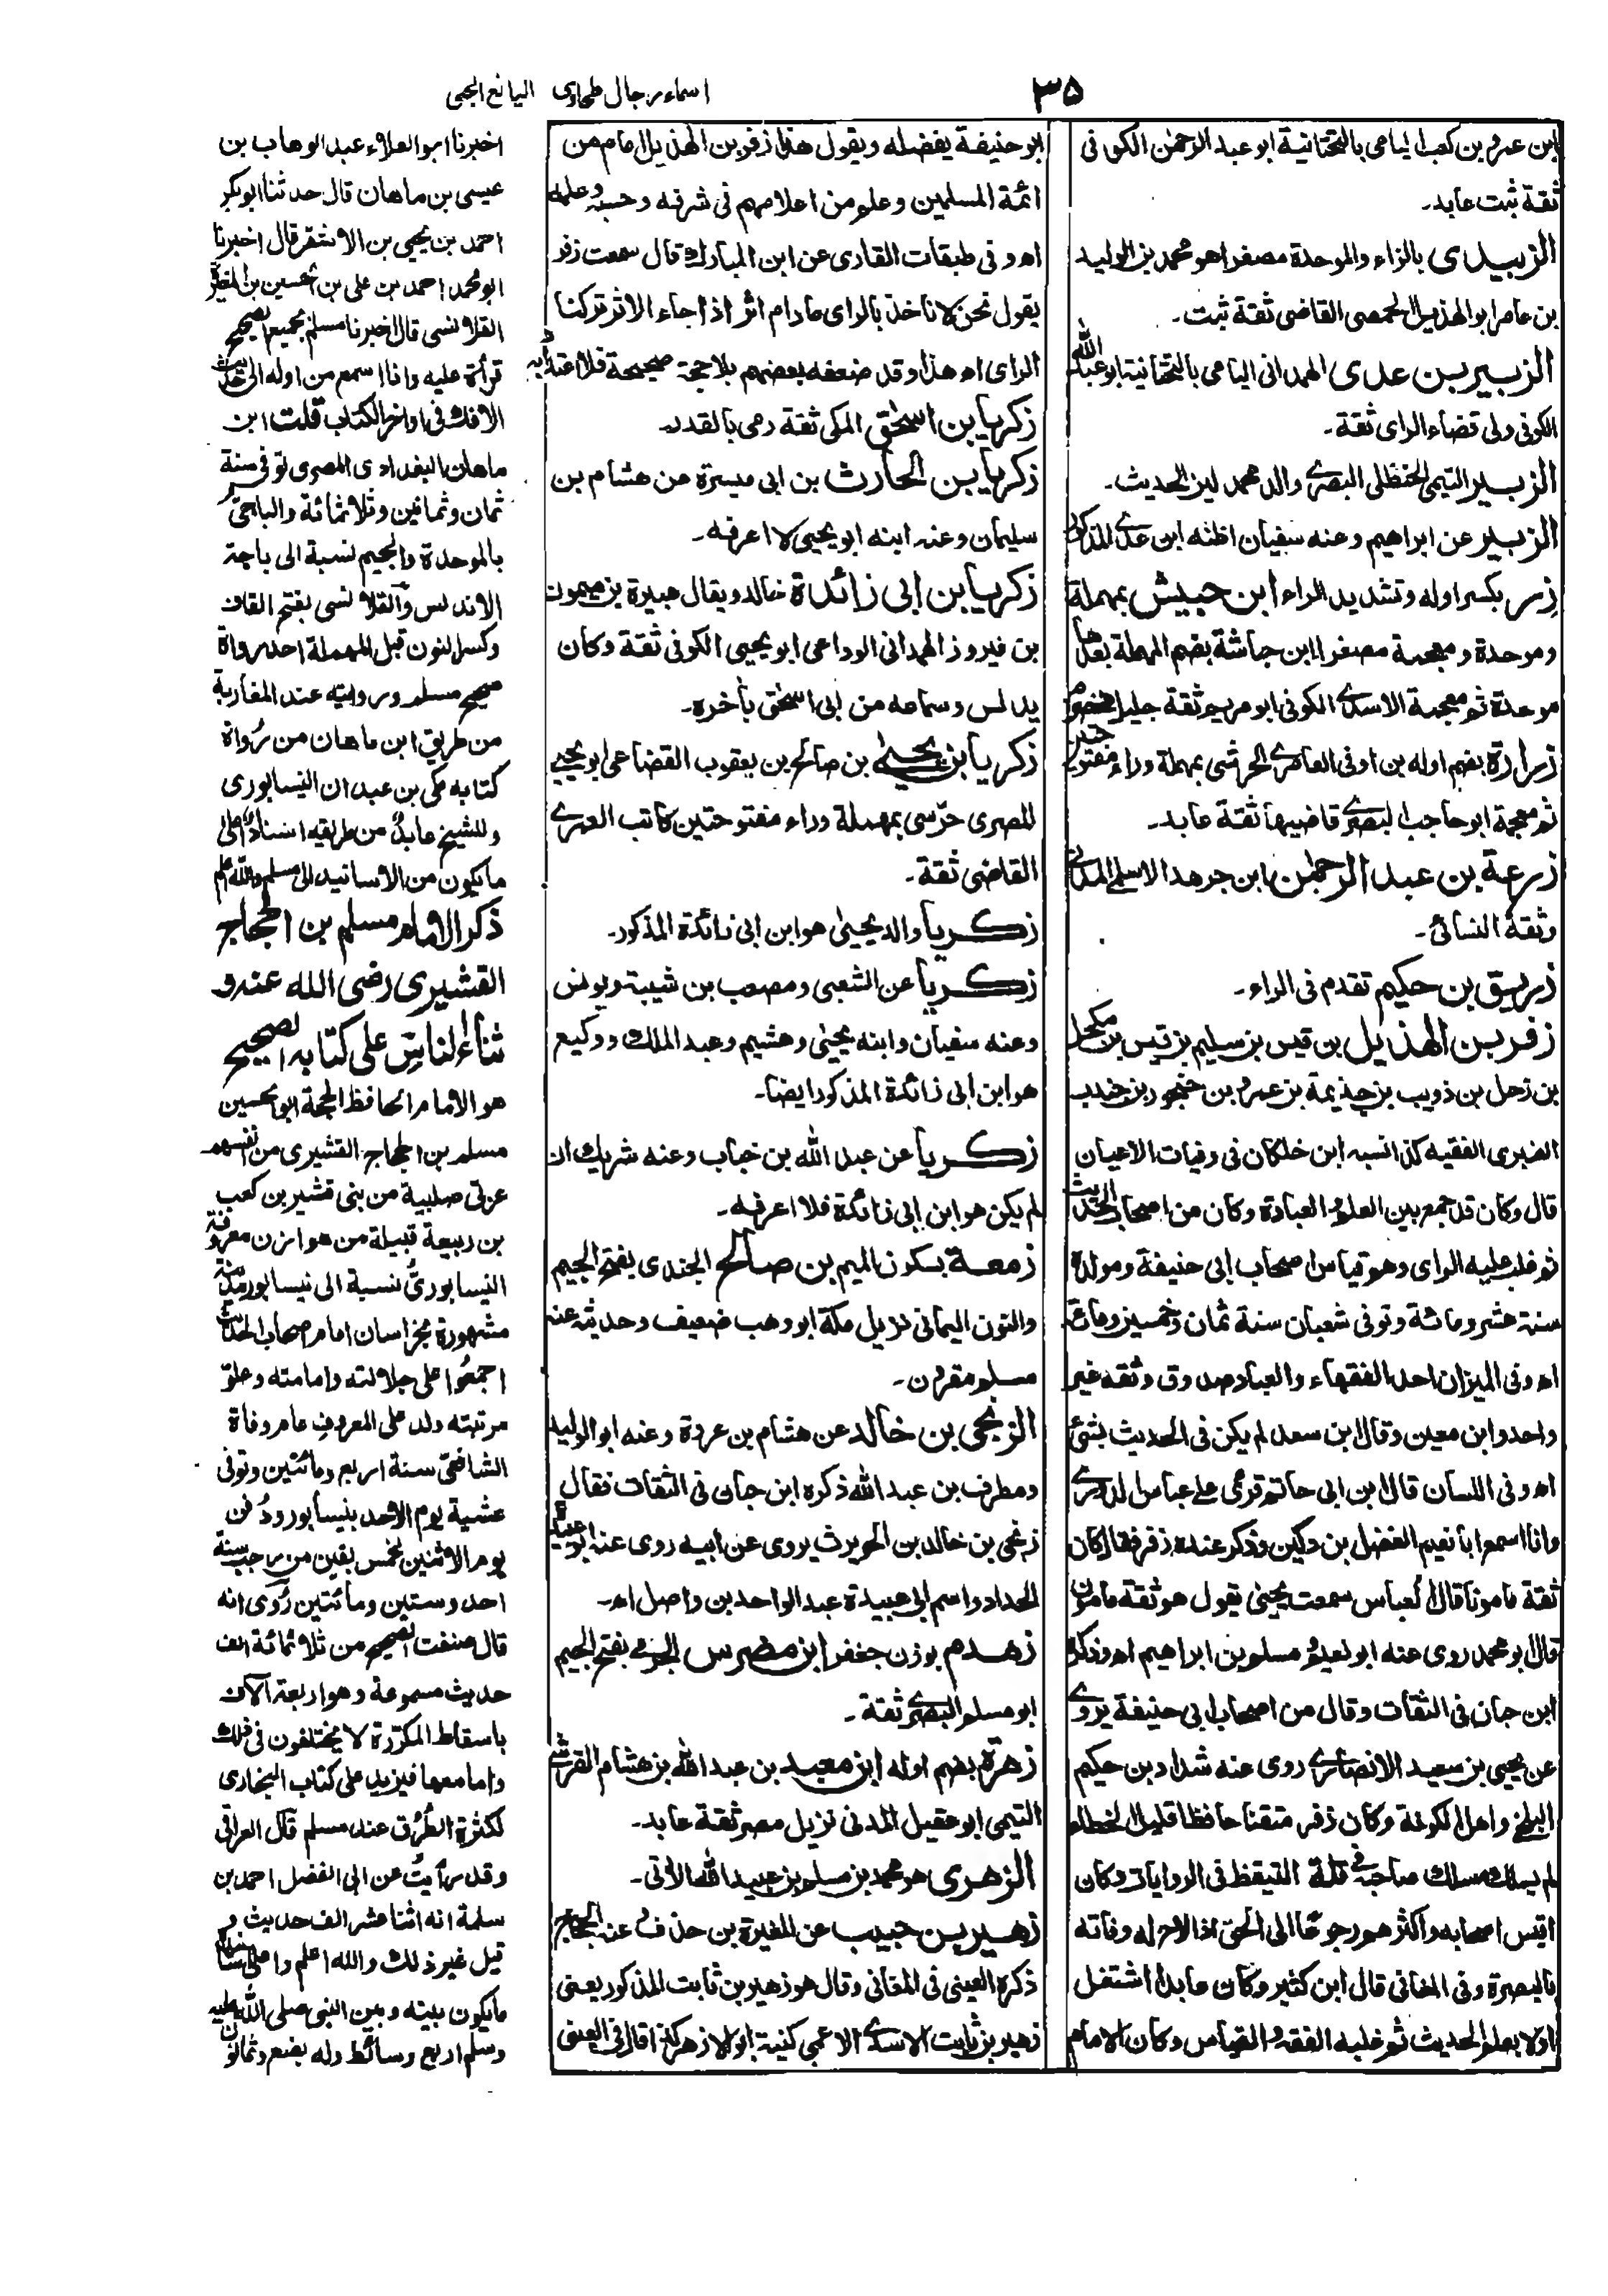 ٣٥
اسماء رجال طحاوی اليانع الجمی
ابن عمرو بن كعب اليامی بالتحتانية ابو عبد الرحمٰن الكوفی
ثقة ثبت عابد۔
الزبيدی بالزاء والموحدة مصغرا هو محمد بن الوليد
بن عامر ابو الهذيل الحمصی القاضی ثقة ثبت۔
الزبير بن عدی الهمدانی اليامی بالتحتانية ابو عبد الله
الكوفی ولی قضاء الرای ثقة۔
الزبير التيمی الحنظلی البصرے والد محمد لين الحديث۔
الزبير عن ابراهيم وعنه سفيان اظنه ابن عدے المذكور
زر بكسر اوله وتشديد الراء ابن حبيش بمهملة
وموحدة ومعجمة مصغرا ابن حباشة بضم المهملة بعدها
موحدة ثم معجمة الاسدے الكوفی ابو مريم ثقة جليل مخضرم
زرارة بضم اوله بن اوفی العامرے الحرشی بمهملة وراء مفتوحتين
ثم معجمة ابو حاجب البصرے قاضيها ثقة عابد۔
زرعة بن عبد الرحمٰن ابن جرهد الاسلمے المدنے
وثقة النسائی۔
زريق بن حكيم تقدم فی الراء۔
زفر بن الهذيل بن قيس بن سليم بن قيس بن مكمل
بن ذهل بن ذويب بن جذيمة بن عمرو بن حنجور بن جندب
العنبری الفقيه كذا نسبه ابن خلكان فی وفيات الاعيان
قال وكان قد جمع بين العلم والعبادة وكان من اصحاب الحديث
ثم غلب عليه الرای وهو قياس اصحاب ابی حنيفة ومولده
سنة عشر ومائة وتوفی شعبان سنة ثمان وخمسين ومائة
اھ وفی الميزان احد الفقهاء والعباد صدوق وثقه غير
واحد وابن معين وقال ابن سعد لم يكن فی الحديث بشئ
اھ وفی اللسان قال ابن ابی حاتم قرئ علے عباس الدورے
وانا اسمع ابا نعيم الفضل بن دكين وذكر عنده زفر فقال كان
ثقة مامونا قال العباس سمعت يحيیٰ يقول هو ثقة مامون
قال ابو محمد روی عنه ابو نعيم و مسلم بن ابراهيم اھ وذكره
ابن حبان فی الثقات وقال من اصحاب ابی حنيفة يروے
عن يحيی بن سعيد الانصارے روی عنه شداد بن حكيم
البلخی واهل الكوفة وكان زفر متقنا حافظا قليل الخطاء
لم يسلك مسلك صاحبه فی قلة التيقظ فی الروايات وكان
اقيس اصحابه واكثرهم رجوعا الی الحق اذا لاح له وفاته
بالبصرة وفی المغانی قال ابن كثير وكان عابدا اشتغل
اولا بعلم الحديث ثم غلبه الفقه والقياس وكان الامام
ابو حنيفة يفضله ويقول هذا زفر بن الهذيل امام من
ائمة المسلمين وعلم من اعلامهم فی شرفه وحسبه وعلمه
اھ وفی طبقات القاری عن ابن المبارك قال سمعت زفر
يقول نحن لا ناخذ بالرای مادام اثر اذا جاء الاثر تركنا
الرای اھ هذا وقد ضعفه بعضهم بلا حجة صحيحة فلا اعتداد به
زكريا بن اسحٰق المكی ثقة رمی بالقدر۔
زكريا بن الحارث بن ابی ميسرة عن هشام بن
سليمان وعنه ابنه ابو يحيی لا اعرفه۔
زكريا بن ابی زائدة خالد ويقال هبيرة بن ميمون
بن فيروز الهمدانی الوداعی ابو يحيی الكوفی ثقة وكان
يدلس وسماعه من ابی اسحٰق باٰخره۔
زكريا بن يحيٰی بن صالح بن يعقوب القضاعی ابو يحيے
المصری حرسی بمهملة وراء مفتوحتين كاتب العمرے
القاضی ثقة۔
زكريا والد يحيیٰ هو ابن ابی زائدة المذكور۔
زكريا عن الشعبی ومصعب بن شيبة ويونس
وعنه سفيان وابنه يحيیٰ وهشيم وعبد الملك و وكيع
هو ابن ابی زائدة المذكور ايضا۔
زكريا عن عبد الله بن خباب وعنه شريك ان
لم يكن هو ابن ابی زائدة فلا اعرفه۔
زمعة بسكون الميم بن صالح الجندی بفتح الجيم
والنون اليمانی نزيل مكة ابو وهب ضعيف وحديثه عند
مسلم مقرون۔
الزنجی بن خالد عن هشام بن عروة وعنه ابو الوليد
ومطرف بن عبد الله ذكره ابن حبان فی الثقات فقال
زنجی بن خالد بن الحويرث يروی عن ابيه روی عنه ابو عبيدة
الحداد واسم ابی عبيدة عبد الواحد بن واصل اھ۔
زهدم بوزن جعفر ابن مضرس الجرمے بفتح الجيم
ابو مسلم البصرے ثقة۔
زهرة بضم اوله ابن معبد بن عبد الله بن هشام القرشے
التيمی ابو عقيل المدنی نزيل مصر ثقة عابد۔
الزهری هو محمد بن مسلم بن عبيد الله الاتی۔
زهير بن حبيب عن المغيرة بن حذف وعنه الحجاج
ذكره العينی فی المغانی وقال هو زهير بن ثابت المذكور يعنی
زهير بن ثابت الاسدے الاعمی كنية ابو الازهر كذا قال فی العينی
اخبرنا ابو العلاء عبد الوهاب بن
عيسی بن ماهان قال حدثنا ابو بكر
احمد بن يحيی بن الاشقر قال اخبرنا
ابو محمد احمد بن علی بن الحسين بن المغيرة
القلانسی قال اخبرنا مسلم بجميع الصحيح
قرأة عليه وانا اسمع من اوله الی حديث
الافك فی اواخر الكتاب قلت ابن
ماهان البغدادی المصری توفی سنة
ثمان وثمانين وثلاثمائة والباجی
بالموحدة والجيم نسبة الی باجة
الاندلس والقلانسی بفتح القاف
وكسر النون قبل المهملة احد رواة
صحيح مسلم وروايته عند المغاربة
من طريق ابن ماهان من رواة
كتابه مكی بن عبدان النيسابوری
وللشيخ عابد من طريقه اسناد اعلی
مايكون من الاسانيد الی مسلم والله اعلم
ذكر الامام مسلم بن الحجاج
القشيری رضی الله عنه و
ثناء الناس علی كتابه الصحيح
هو الامام الحافظ الحجة ابو الحسين
مسلم بن الحجاج القشيری من انفسهم
عربی صلبية من بنی قشير بن كعب
بن ربيعة قبيلة من هوازن معروفة
النيسابوری نسبة الی نيسابور مدينة
مشهورة بخراسان امام اصحاب الحديث
اجمعوا علی جلالته وامامته وعلو
مرتبته ولد علی المعروف عام وفاة
الشافعی سنة اربع ومائتين وتوفی
عشية يوم الاحد بنيسابور ودفن
يوم الاثنين لخمس بقين من رجب سنة
احد وستين ومائتين روی انه
قال صنفت الصحيح من ثلاثمائة الف
حديث مسموعة وهو اربعة الآف
باسقاط المكررة لا يختلفون فی ذلك
واما معها فيزيد علی كتاب البخاری
لكثرة الطرق عند مسلم قال العراقی
وقد رأيت عن ابی الفضل احمد بن
سلمة انه اثنا عشر الف حديث و
قيل غير ذلك والله اعلم واعلی اسناد
مايكون بينه وبين النبی صلی الله عليه
وسلم اربع وسائط وله بضع وثمانون